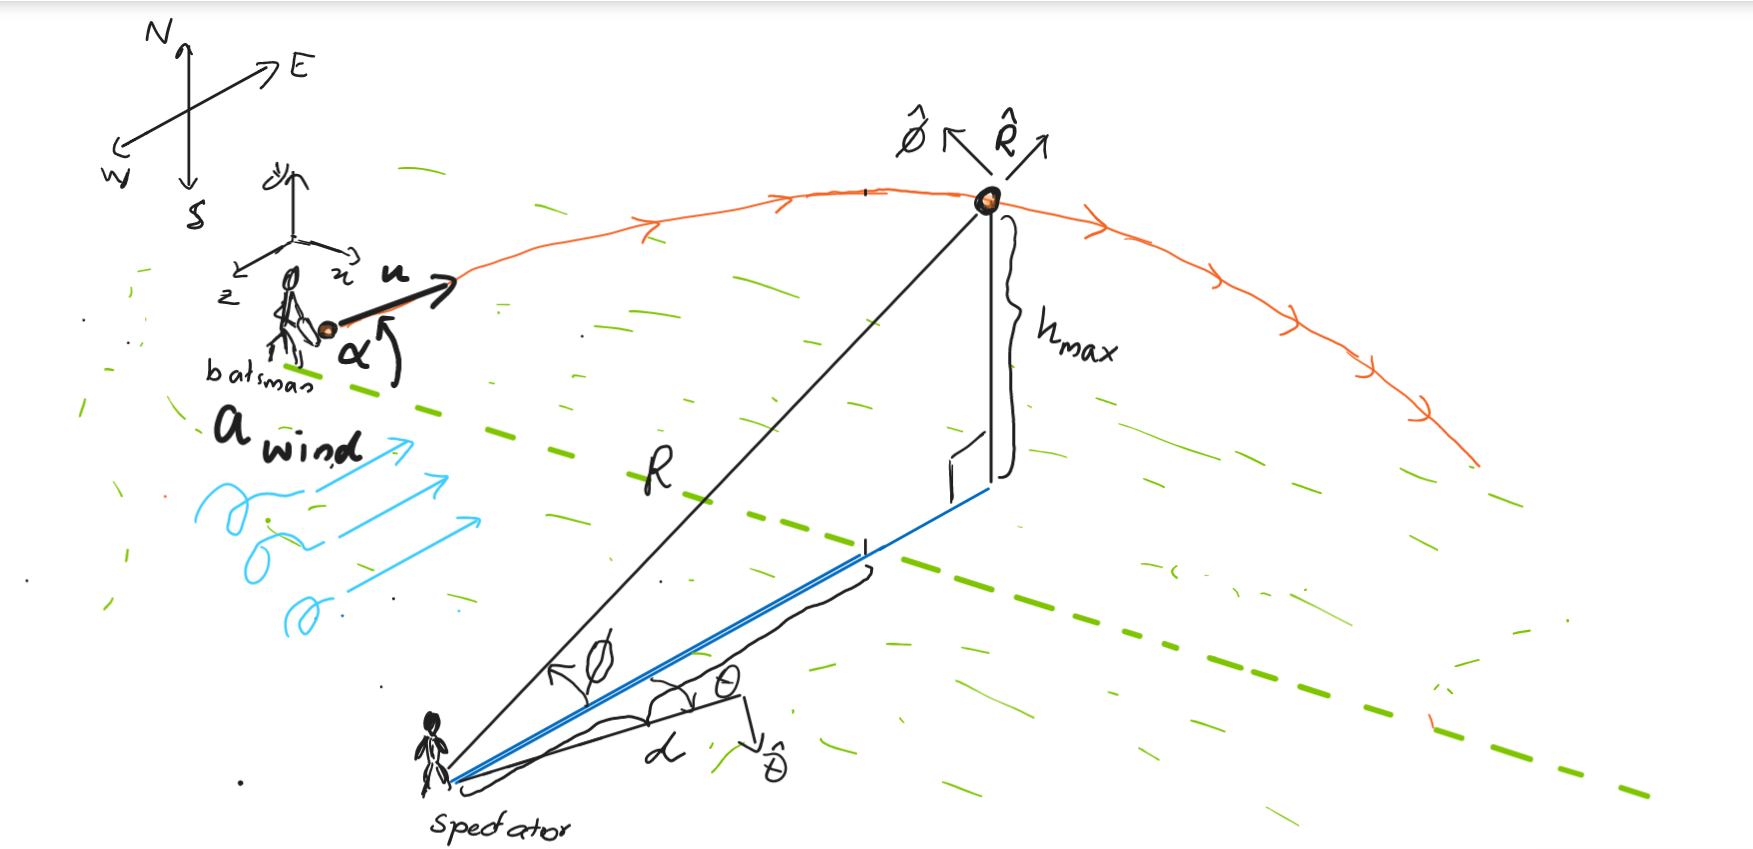 N
E
W
S
y
x
z
u
α
batsman
a wind
R
ϕ̂
R̂
h max
ϕ
θ
d
θ̂
spectator